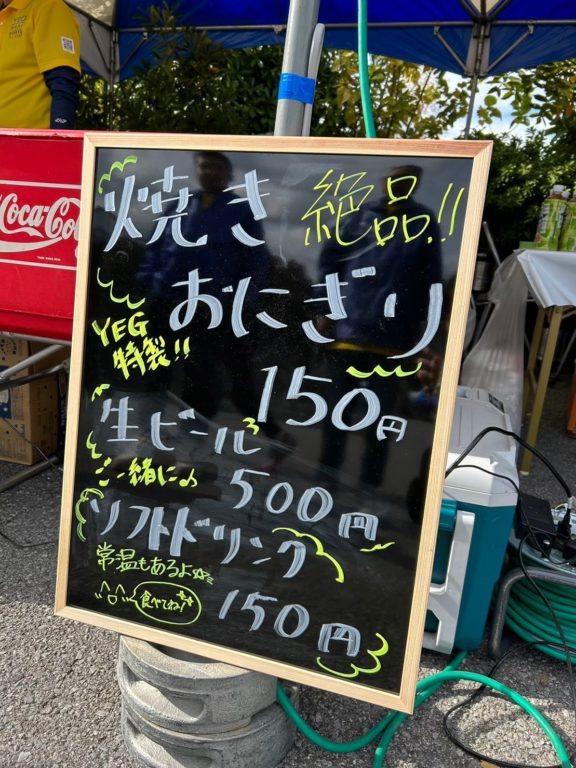 YEG
Coca-Cola
焼き
絶品!!
おにぎり
YEG
特製!!
150円
生ビール
ご一緒に♪
500円
ソフトドリンク
常温もあるよ☆
食べてね!
150円